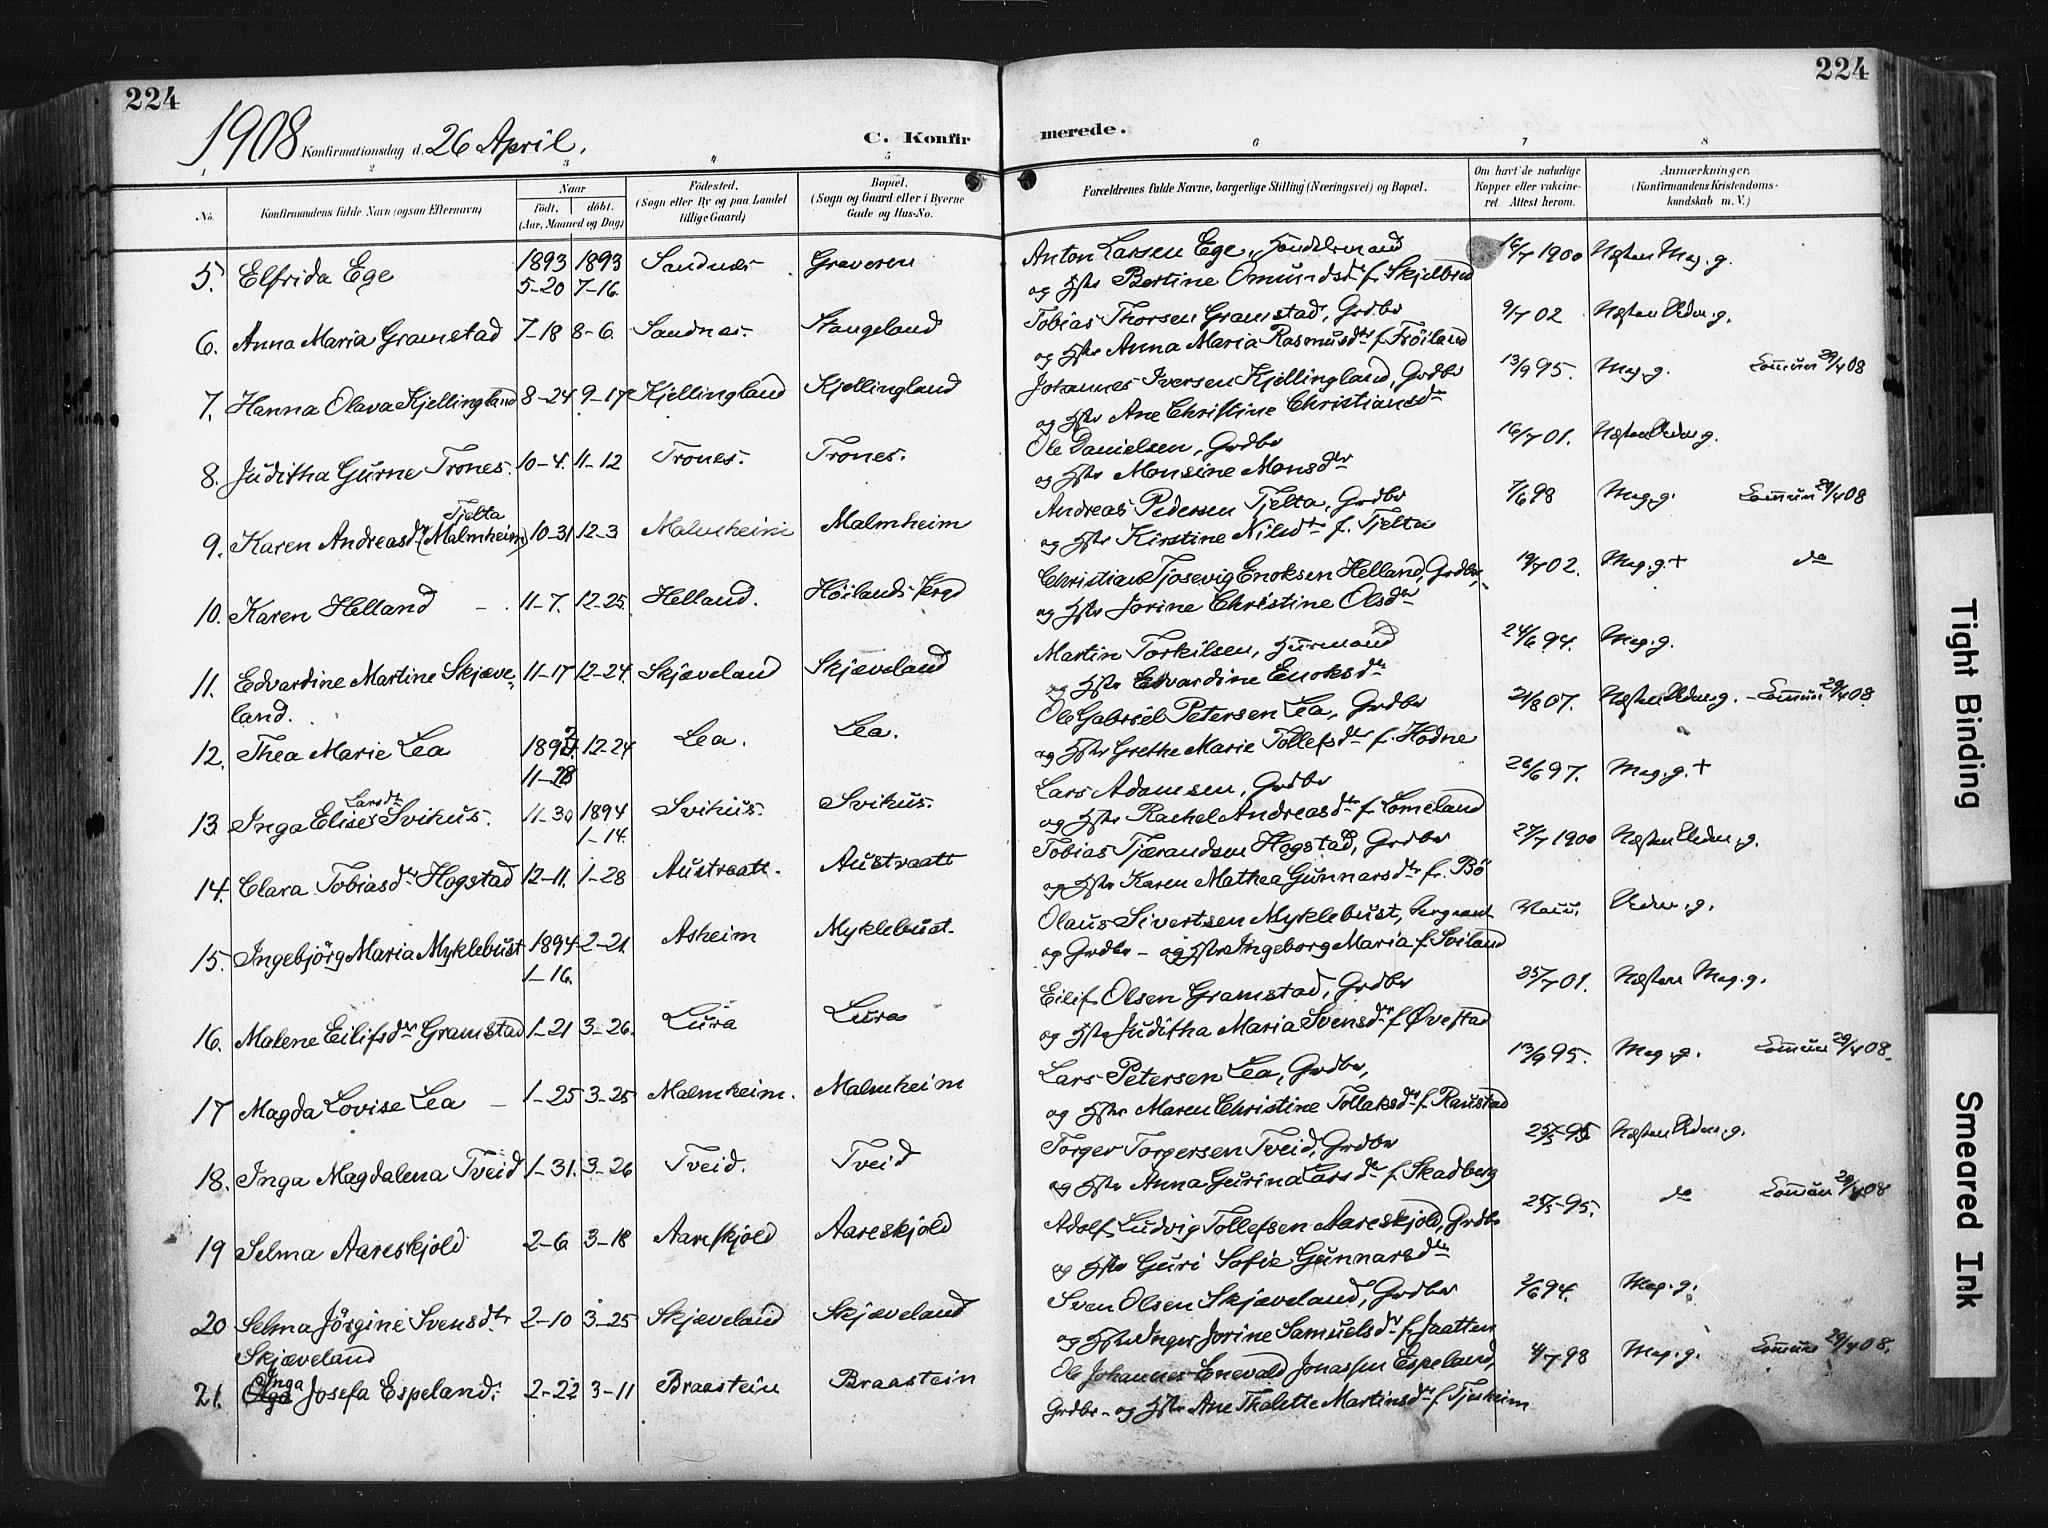 224
224
1908 Konfirmationsdag d. 26 April.
C. Konfir
merede.
1 2 3 4 5
6 7 8
No.
Konfirmandens fulde Navn (ogsaa Efternavn)
Naar
født. døbt.
(Aar, Maaned og Dag)
Fødested.
(Sogn eller By og paa Landet
tillige Gaard)
Bopæl.
(Sogn og Gaard eller i Byerne
Gade og Hus-No.
Forældrenes fulde Navne, borgerlige Stilling (Næringsvei) og Bopæl.
Om havt de naturlige
Kopper eller vakcine-
ret. Attest herom.
Anmærkninger.
(Konfirmandens Kristendoms-
kundskab m. V.)
5. Elfrida Ege 1893 5-20 1893 7-16. Sandnes Graveren
Anton Larsen Ege, Handelsmand 16/7 1900 Næsten Meg. g.
og Hstr Bertine Omundsdr f. Skjelbred
6. Anna Maria Gramstad 7-18 8-6. Sandnes. Stangeland
Tobias Thorsen Gramstad, Grdbr 9/7 02 Næsten Udm. g.
og Hstr Anna Maria Rasmusdtr f. Fröiland
7. Hanna Olava Kjellingland 8-24 9-17 Kjellingland Kjellingland
Johannes Iversen Kjellingland, Grdbr 13/9 95. Meg. g. 29/4 08
og Hstr Ane Christine Christiansdtr
8. Juditha Gurne Trones. 10-4. 11-12 Trones. Trones.
Ole Danielsen, Grdbr 16/7 01. Næsten Udm g.
og Hstr Monsine Monsdtr
9. Karen Andreasdtr (Malmheim) Tjelta 10-31 12-3 Malmheim Malmheim
Andreas Pedersen Tjelta, Grdbr 7/6 98 Meg. g. 29/4 08
og Hstr Kirstine Nilsdtr f. Tjelta
10. Karen Helland 11-7. 12-25. Helland. Höilands Prgd
Christian Tjosevig Enoksen Helland, Grdbr, 19/7 02. Meg. g + do
og Hstr Jorine Christine Olsdtr
11. Edvardine Martine Skjæve- 11-17 12-24. Skjæveland Skjæveland
land.
Martin Torkilsen, Husmand 24/6 94. Meg. g.
og Hstr Edvardine Enoksdtr
12. Thea Marie Lea 1893 11-28 12-24 Lea. Lea.
Ole Gabriel Petersen Lea, Grdbr 21/8 07. Næsten Udm. g. 29/4 08.
og Hstr Grethe Marie Tollefsdtr f. Hodne
13 Inga Elise Larsdtr Svihus. 11-30 1894 1-14. Svihus. Svihus.
Lars Adamsen, Grdbr 26/6 97. Meg. g. +
og Hstr Rachel Andreasdtr f. Lomeland
14. Clara Tobiasdtr Hogstad 12-11. 1-28 Austraatt. Austraatt
Tobias Tjærandsen Hogstad, Grdbr 27/7 1900 Næsten Udm. g.
og Hstr Karen Mathea Gunnarsdtr f. Bö
15. Ingebjörg Maria Myklebust 1894 1-16. 2-21. Asheim Myklebust.
Olaus Sivertsen Myklebust, Sergeant Udm. g.
og Grdbr - og Hstr Ingeborg Maria f. Sviland
16. Malene Eilifsdtr Gramstad 1-21 3-26. Lura Lura
Eilif Olsen Gramstad, Grdbr 25/7 01. Næsten Meg. g.
og Hstr Juditha Maria Svensdtr f. Øvestad
17 Magda Lovise Lea 1-25 3-25 Malmheim. Malmheim
Lars Petersen Lea, Grdbr, 13/9 95. Meg. g. 29/4 08.
og Hstr Maren Christine Tollaksdtr f. Raustad
18. Inga Magdalena Tveid 1-31. 3-26 Tveid. Tveid
Torger Torgersen Tveid, Grdbr 25/5-95 Næsten Udm. g.
og Hstr Anna Gurina Larsdtr f. Skadberg
19 Selma Aareskjold 2-6. 3-18 Aareskjold Aareskjold
Adolf Ludvig Tollefsen Aareskjold, Grdbr 25/5-95. do 29/4 08
og Hstr Guri Sofie Gunnarsdtr
20 Selma Jörgine Svensdtr 2-10 3-25 Skjæveland Skjæveland
Skjæveland
Sven Olsen Skjæveland, Grdbr 2/6 94. Meg. g.
og Hstr Inger Jorine Samuelsdtr f. Jaatten
21. Olga Inga Josefa Espeland. 2-22 3-11 Braastein Braastein
Ole Johannes Enevald Jonassen Espeland, 4/7 98 Meg. g. 29/4 08.
Grdbr - og Hstr Ane Thalette Martinsdtr f. Tjesheim
Tight Binding
Smeared Ink